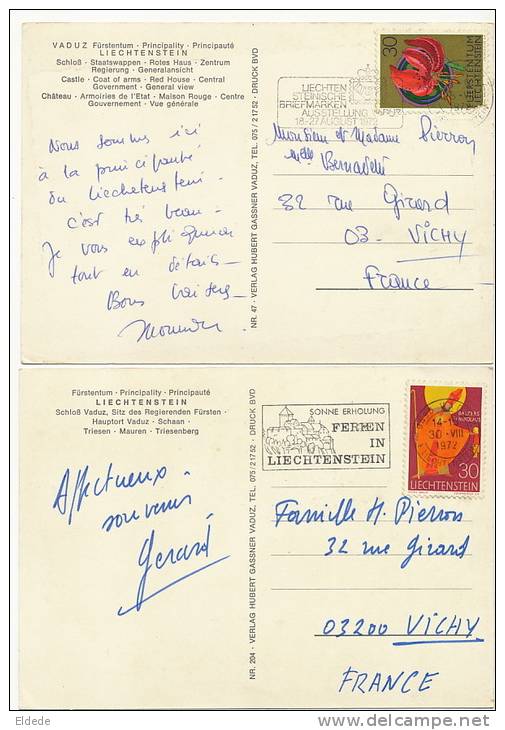 VADUZ Fürstentum · Principality · Principauté
LIECHTENSTEIN
Schloß · Staatswappen · Rotes Haus · Zentrum
Regierung · Generalansicht
Castle · Coat of arms · Red House · Central
Government · General view
Château · Armoiries de l'Etat · Maison Rouge · Centre
Gouvernement · Vue générale
Nous sommes ici
à la principauté
du Liechetenstein.
c'est très beau -
Je vous expliquerai
tout en détails -
Bons baisers -
NR. 47 · VERLAG HUBERT GASSNER VADUZ, TEL. 075 / 21752 · DRUCK BVD
LIECHTEN
STEINISCHE
BRIEFMARKEN
AUSSTELLUNG
18-27 AUGUST 1972
30
FÜRSTENTUM
LIECHTENSTEIN
Monsieur et Madame Pierron
Melle Bernadette
32 rue Girard
03 - VICHY
France
Fürstentum · Principality · Principauté
LIECHTENSTEIN
Schloß Vaduz, Sitz des Regierenden Fürsten ·
Hauptort Vaduz · Schaan ·
Triesen · Mauren · Triesenberg
Affectueux
souvenir
Gérard
NR. 204 · VERLAG HUBERT GASSNER VADUZ, TEL. 075 / 21752 · DRUCK BVD
SONNE ERHOLUNG
FERIEN
IN
LIECHTENSTEIN
BALZERS
ST. NIKOLAUS
30.-VIII
1972
30
LIECHTENSTEIN
Famille H. Pierron
32 rue Girard
03200 VICHY
FRANCE
Eldede
delcampe.net